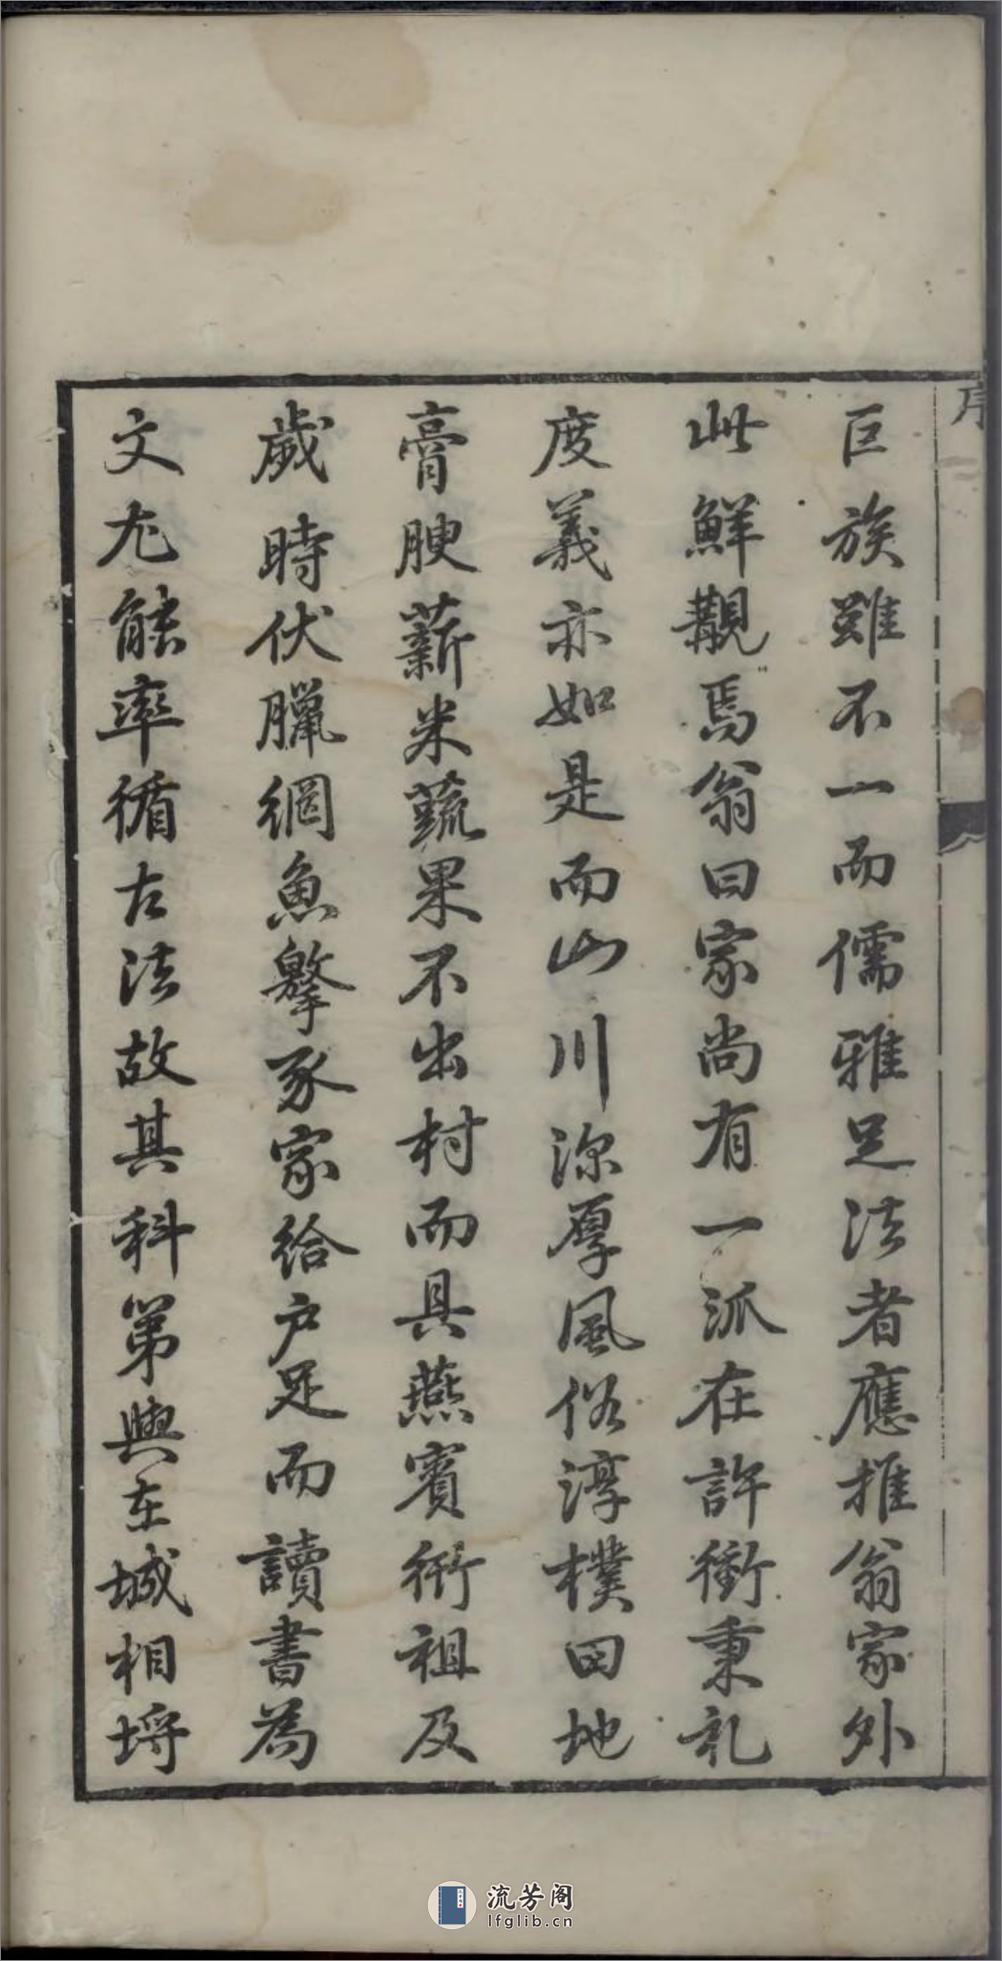 序
巨族雖不一而儒雅足法者應推翁家外
此鮮覯焉翁曰家尚有一派在許衝秉礼
度義亦如是而山川深厚風俗淳樸田地
膏腴薪米蔬果不出村而具燕賓衎祖及
歲時伏臘網魚擊豕家給户足而讀書為
文尤能率循古法故其科第與在城相埒
流芳阁
lfglib.cn